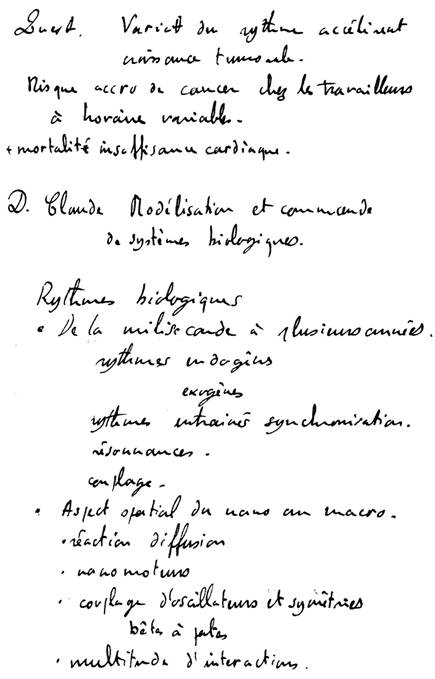 Quest. Variat du rythme accélérant
croissance tumorale.
Risque accru de cancer chez les travailleurs
à horaire variables.
+ mortalité insuffisance cardiaque.
D. Claude Modélisation et commande
de systèmes biologiques.
Rythmes biologiques
• De la milliseconde à plusieurs années.
rythmes endogènes
exogènes
rythmes entrainés synchronisation.
résonnances.
couplage.
• Aspect spatial du nano au macro.
• réaction diffusion
• nanomoteurs
• couplage d'oscillateurs et symétries
bêtes à pates
• multitude d'interactions.